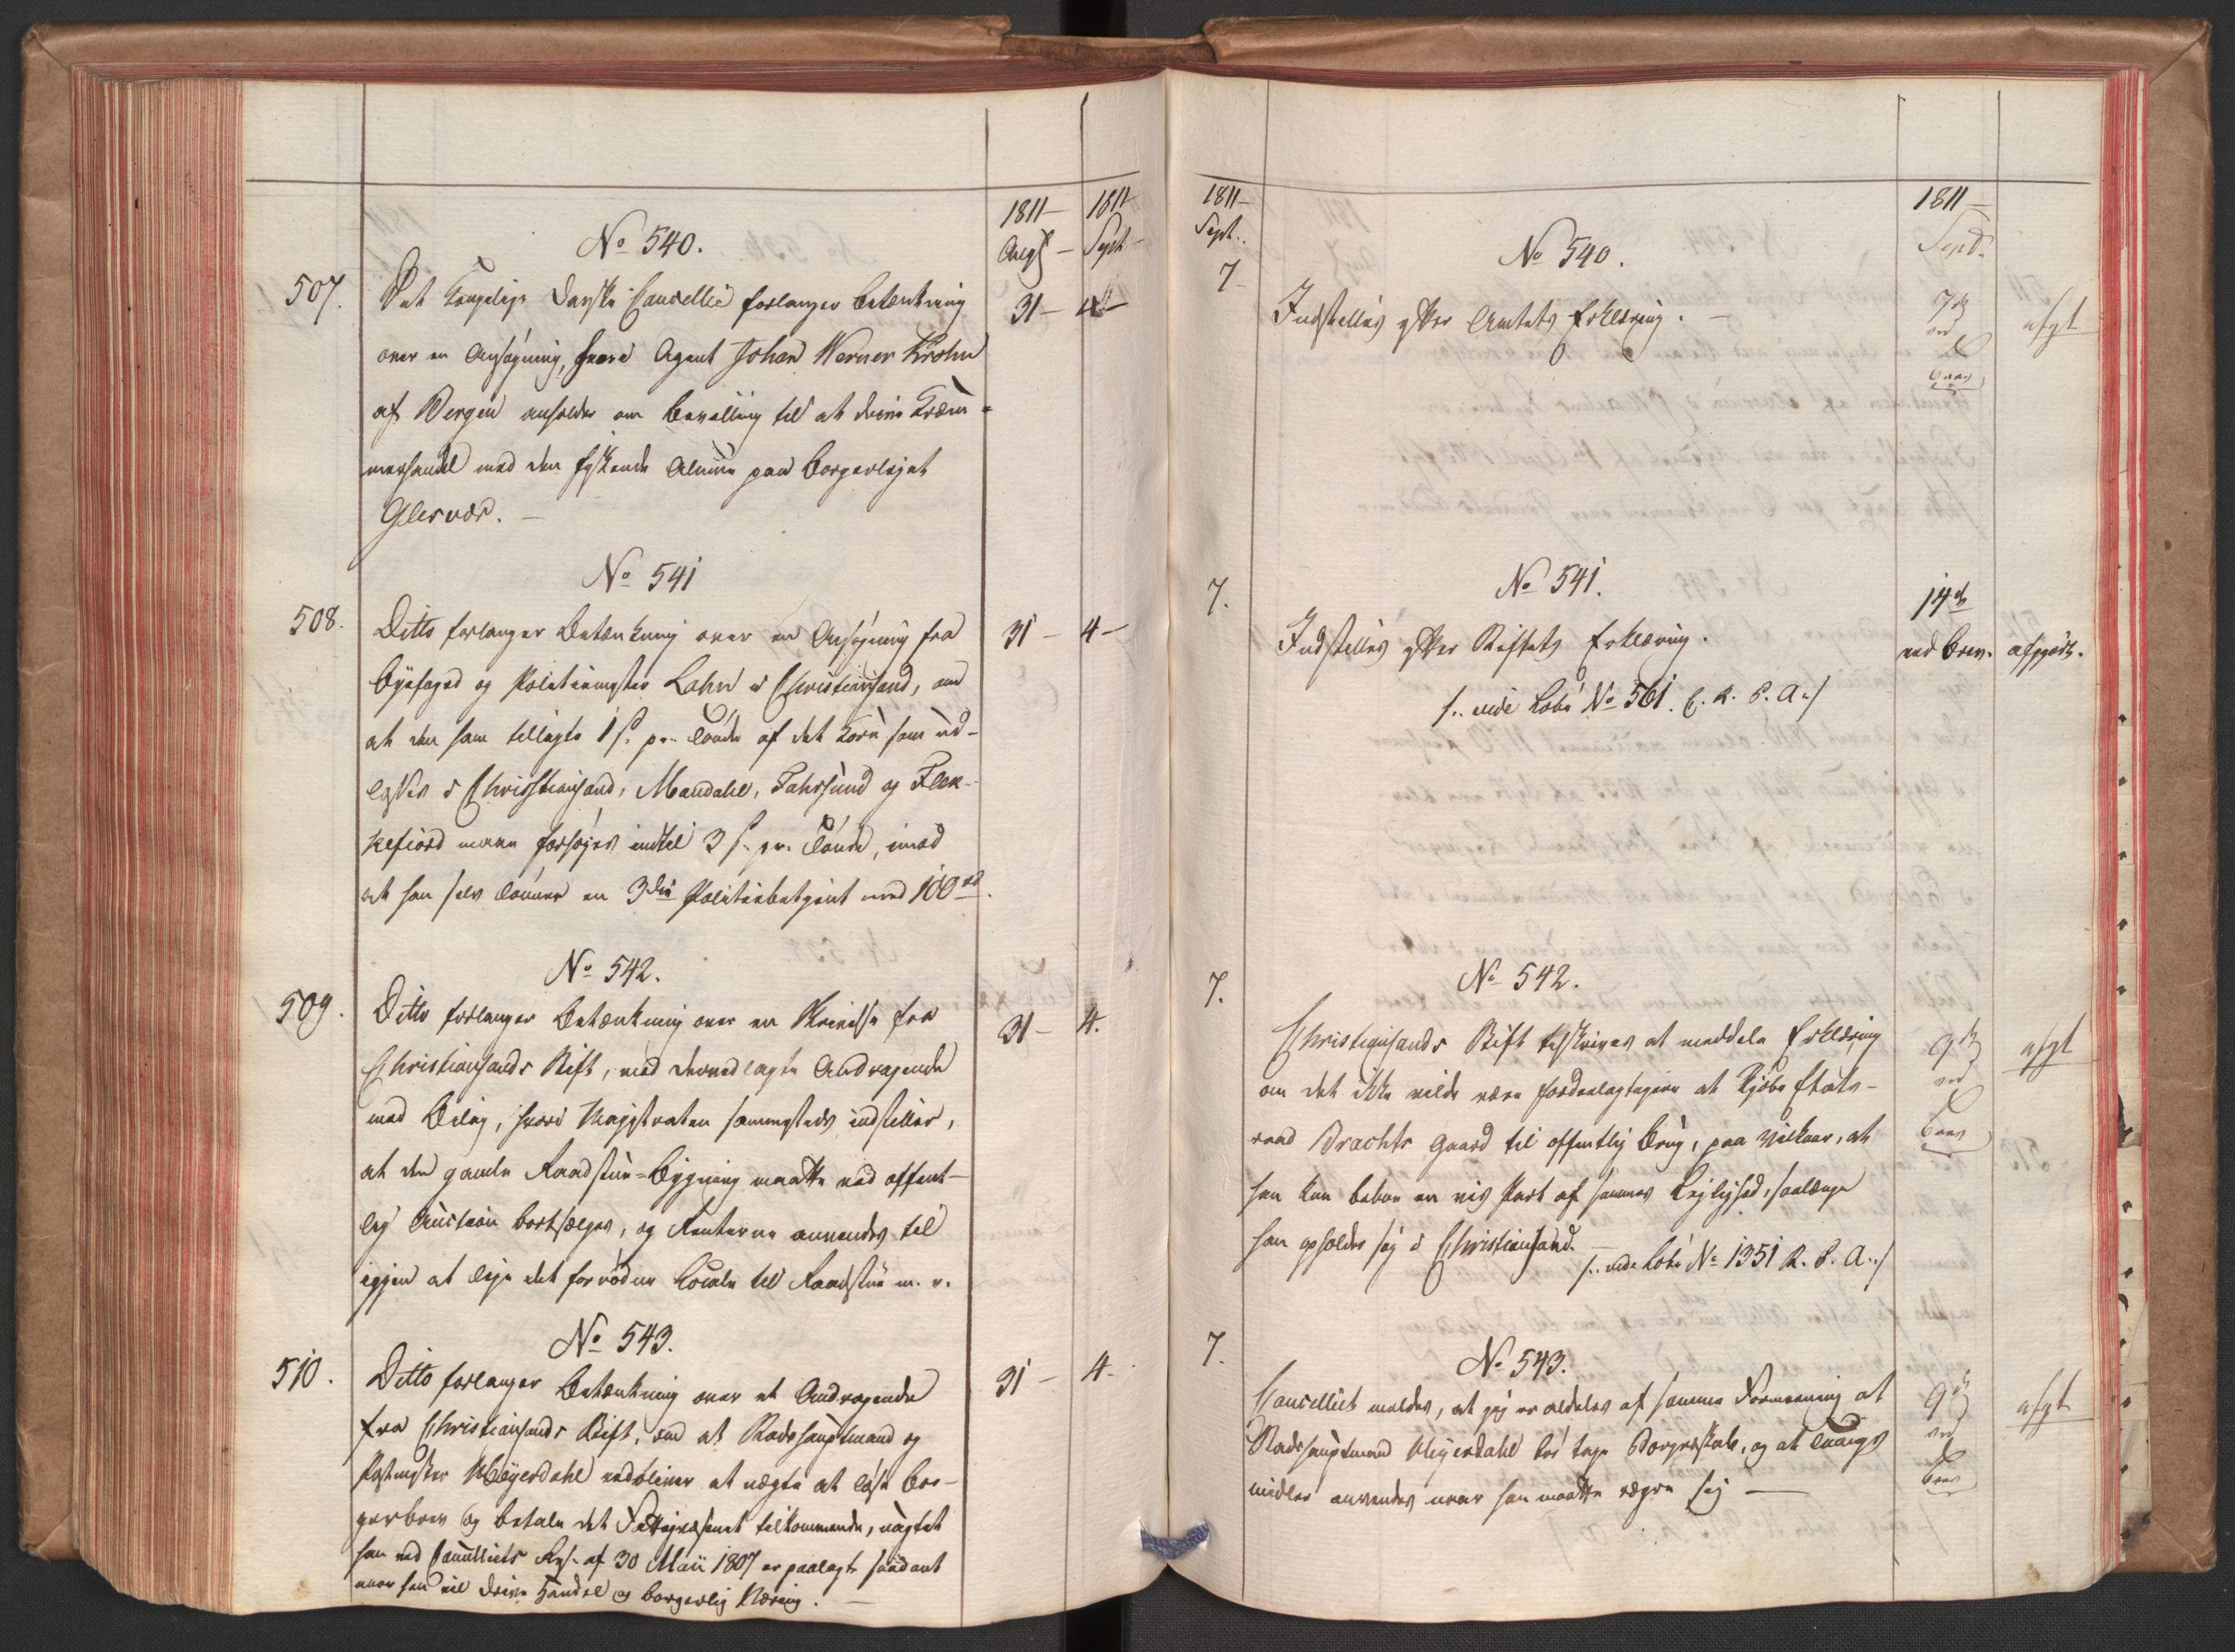 1811 –
1811
Augst –
Sept –
No 540.
507.
Det Kongelige Danske Cancellie forlanger Betenkning
31 –
4 –
over en Ansøgning, hvori Agent Johan Werner Krohn
af Bergen anholder om Bevilling til at drive Kræm-
merhandel med den fiskende Almue paa Borgerlejet
Glesvær. –
No 541
508.
Ditto forlanger Betænkning over en Ansøgning fra
31 –
4 –
Byefoged og Politiemester Lahn i Christiansand, om
at den ham tillagte 1 s. pr. Tønde af det Korn som ud-
losses i Christiansand, Mandahl, Fahrsund og Flek-
kefiord maae forhøjes indtil 3 s. pr. Tønde, imod
at han selv lønner en 3die Politiebetjent med 100 rd.
No 542.
509.
Ditto forlanger Betænkning over en Skrivelse fra
31 –
4.
Christiansands Stift, med derved lagte Andragende
med Bilag, hvori Magistraten sammesteds indstiller,
at den gamle Raadstue-Bygning maatte ved offent-
lig Auction bortsælges, og Renterne anvendes til
igjen at leje det fornødne Locale til Raadstue m. v.
No 543.
510.
Ditto forlanger Betænkning over et Andragende
31 –
4.
fra Christiansands Stift, om at Stadshauptmand og
Postmester Meyerdahl vedbliver at nægte at løse Bor-
gerbrev og betale det Fattigvæsenet tilkommende, uagtet
han ved Cancelliets Res. af 30 Maii 1807 er paalagt saadant
naar han vil drive Handel og borgerlig Næring. –
1811 –
Sept.
1811 –
Sept.
No 540.
7
Indstilles efter Amtets Erklæring. –
7de
ved
Brev
afgt
No 541.
7.
Indstilles efter Stiftets Erklæring.
14de
ved Brev.
afgjort.
/: vide Løbe No 561. C. R. P. A:/
No 542.
7.
Christiansands Stift tilskrives at meddele Erklæring
9de
ved
Brev
afgt
om det ikke vilde være fordeelagtigere at kjøbe Etats-
raad Brachts Gaard til offentlig Brug, paa Vilkaar, at
han kun beboe en vis Part af sammes Lejlighed, saalænge
han opholder sig i Christiansand. –
/: vide Løbe No 1351 R. P. A:/
No 543.
7.
Cancelliet meldes, at jeg er aldeles af samme Formeening at
9de
ved
Brev
afgt
Stadshauptmand Meyerdahl bør tage Borgerskab, og at Tvangs
midler anvendes naar han maatte vægre sig –